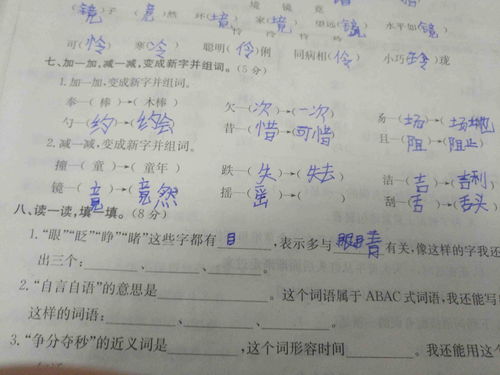 境 镜 竟
(镜)子 (竟)然 环(境) 家(境) 望远(镜) 水平如(镜)
怜 伶 怜 玲
可(怜) 寒(冷) 聪明(伶)俐 同病相(伶) 小巧(玲)珑
七、加一加,减一减,变成新字并组词。(5分)
1.加一加,变成新字并组词。
奉—(棒)→(木棒) 欠—(次)→(一次) 昜—(场)→(场地)
勺—(约)→(约会) 昔—(惜)→(可惜) 且—(阻)→(阻止)
2.减一减,变成新字并组词。
撞—(童)→(童年) 跌—(失)→(失去) 诘—(吉)→(吉利)
镜—(竟)→(竟然) 摇—(䍃)→( ) 刮—(舌)→(舌头)
八、读一读,填一填。(8分)
1.“眼”“眨”“睁”“睹”这些字都有目,表示多与眼睛有关,像这样的字我还
出三个:______、______、______。
2.“自言自语”的意思是____________。这个词语属于ABAC式词语,我还能写
这样的词语:______、______、______。
3.“争分夺秒”的近义词是________,这个词形容时间________。我还能用这个